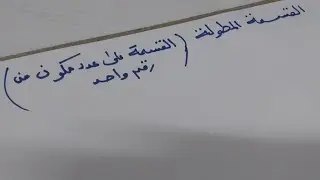 القسمة المطولة (القسمة على عدد مكون من
رقم واحد)